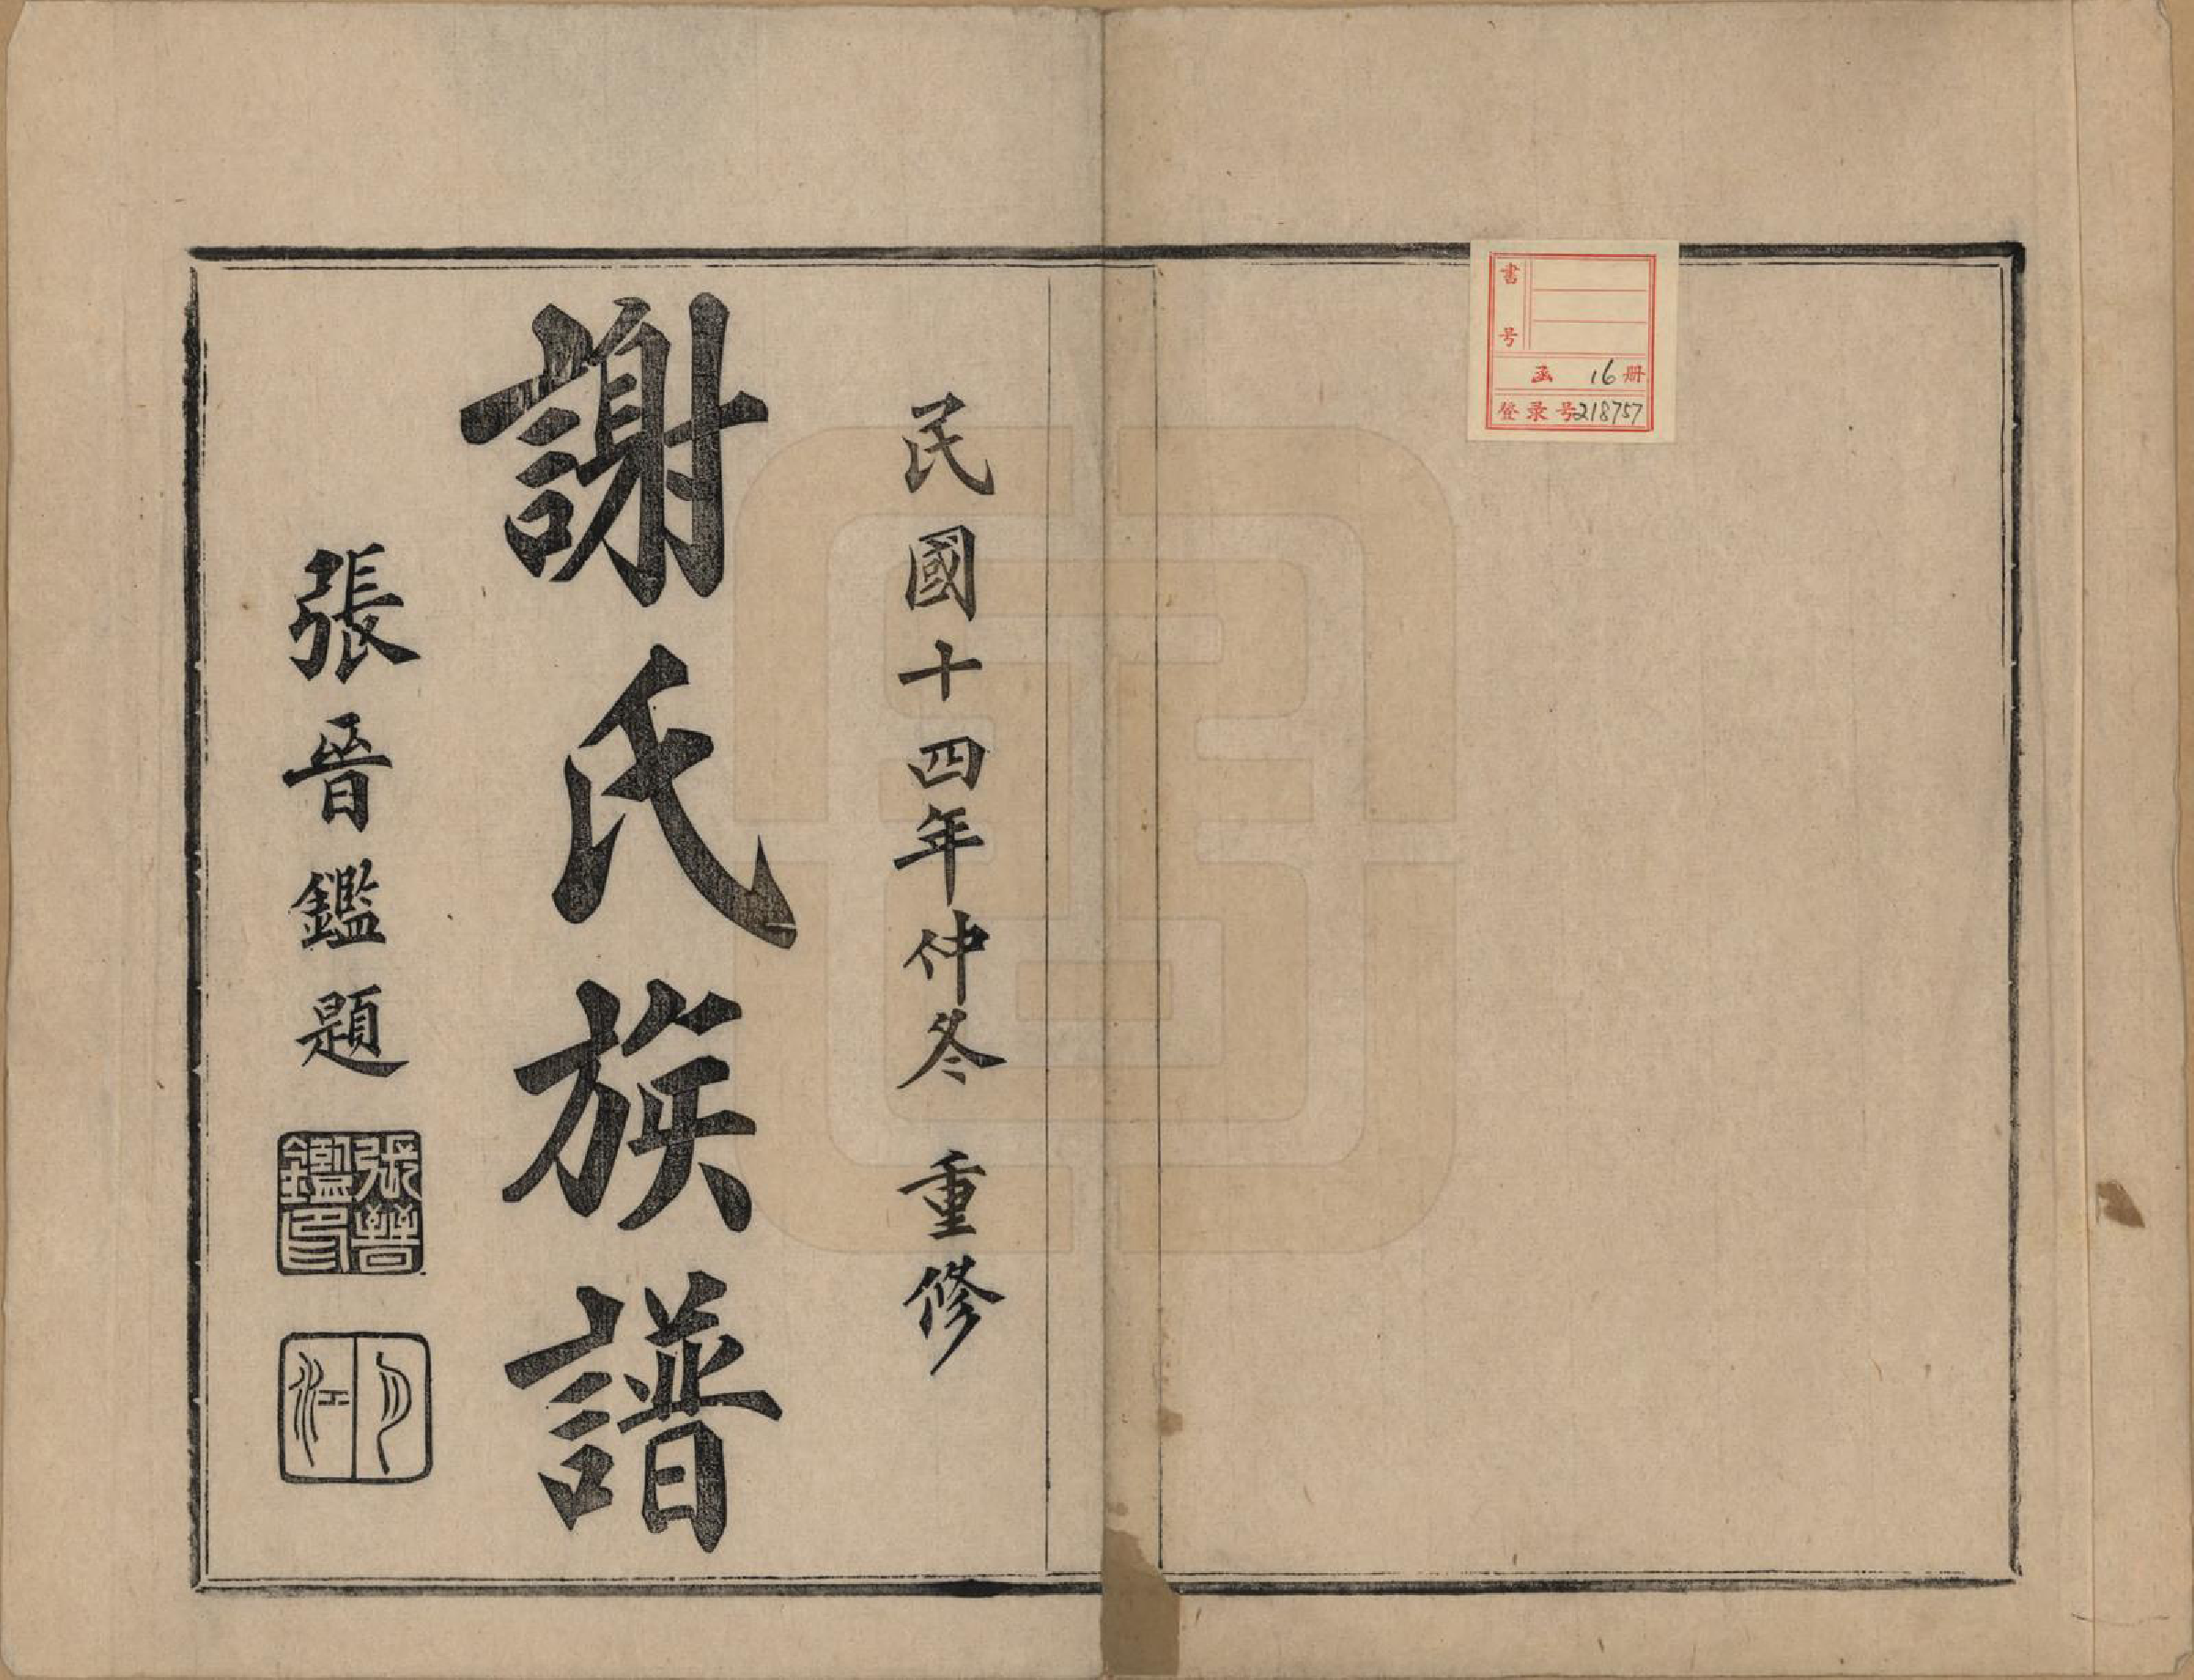 書号
函 16册
登录号218757
民國十四年仲冬 重修
謝氏族譜
張晉鑑題
張晉鑑印
月江